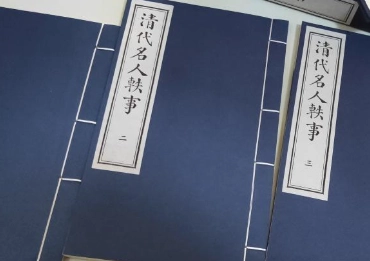 清代名人軼事 二
清代名人軼事 三